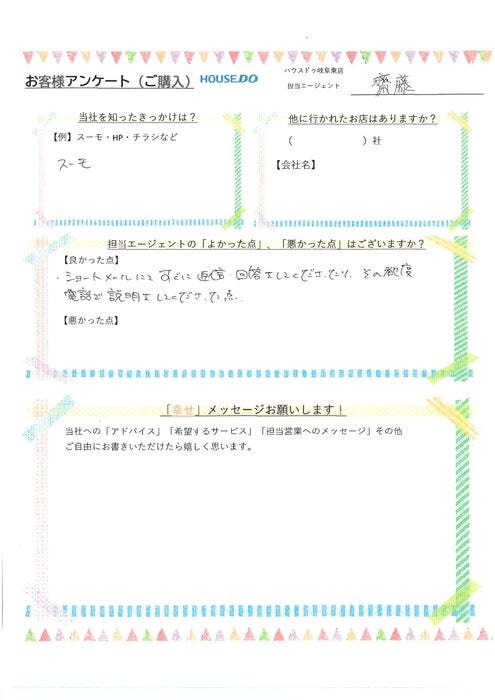 お客様アンケート（ご購入） HOUSEDO
ハウスドゥ岐阜東店
担当エージェント 齋藤
当社を知ったきっかけは？
【例】スーモ・HP・チラシなど
スーモ
他に行かれたお店はありますか？
（ ）社
【会社名】
担当エージェントの「よかった点」、「悪かった点」はございますか？
【良かった点】
・ショートメールにてすぐに返信・回答をしてくださったり、その都度
電話で説明をしてくださった点.
【悪かった点】
「幸せ」メッセージお願いします！
当社への「アドバイス」「希望するサービス」「担当営業へのメッセージ」その他
ご自由にお書きいただけたら嬉しく思います。